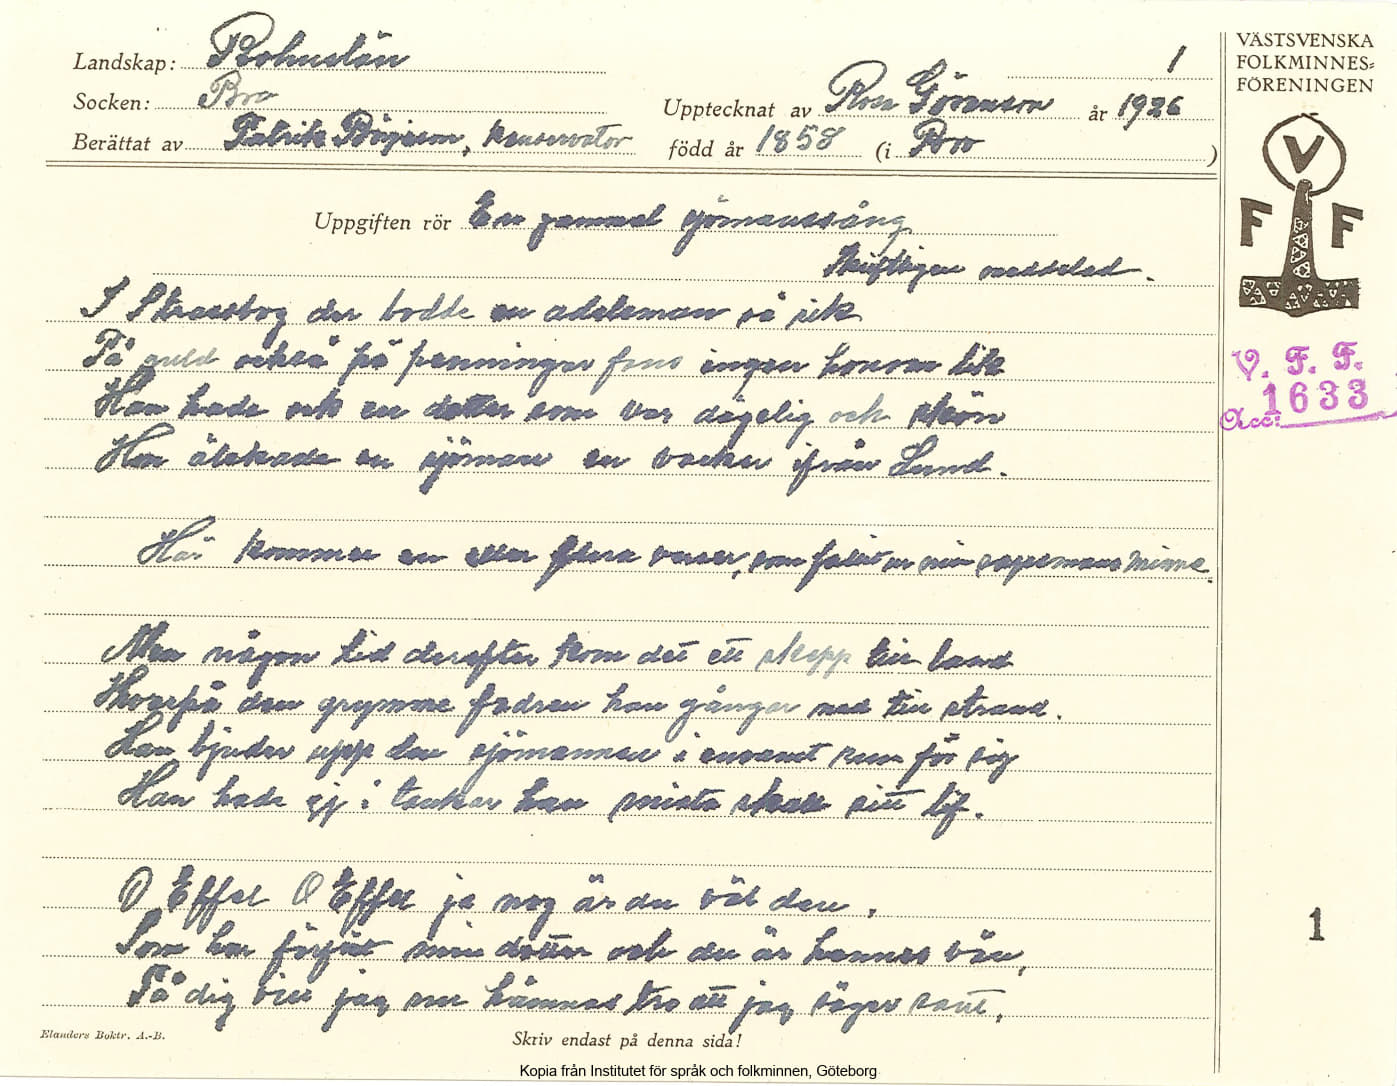 Landskap: Bohuslän
1
Socken: Bro
Upptecknat av Roar Göransson år 1926
Berättat av Patrik Börjeson, konservator
född år 1858 (i Bro)
VÄSTSVENSKA
FOLKMINNES-
FÖRENINGEN
V
F F
V. F. F.
Acc: 1633
Uppgiften rör En gammal sjömanssång
Skriftligen meddelad.
I Strassborg der bodde en adelsman så rik
På guld också på penningar fans ingen honom lik
Han hade ock en dotter som var dägelig och skön
Hon älskade en sjöman en vacker ifrån Lund.
Här kommer en eller flera verser, som fallit ur min sagesmans minne.
Men någon tid derefter kom det ett skepp till land
Hvarpå den grymme fadren han gångar ned till strand.
Han bjuder upp den sjömannen i ensamt rum för sig
Han hade ej i tankar han mista skall sitt lif.
O Effel O Effel ja nog är du väl den,
Som har förfört min dotter och du är hennes vän,
På dig vill jag nu hämnas tro att jag säger sant,
1
Elanders Boktr. A.-B.
Skriv endast på denna sida!
Kopia från Institutet för språk och folkminnen, Göteborg